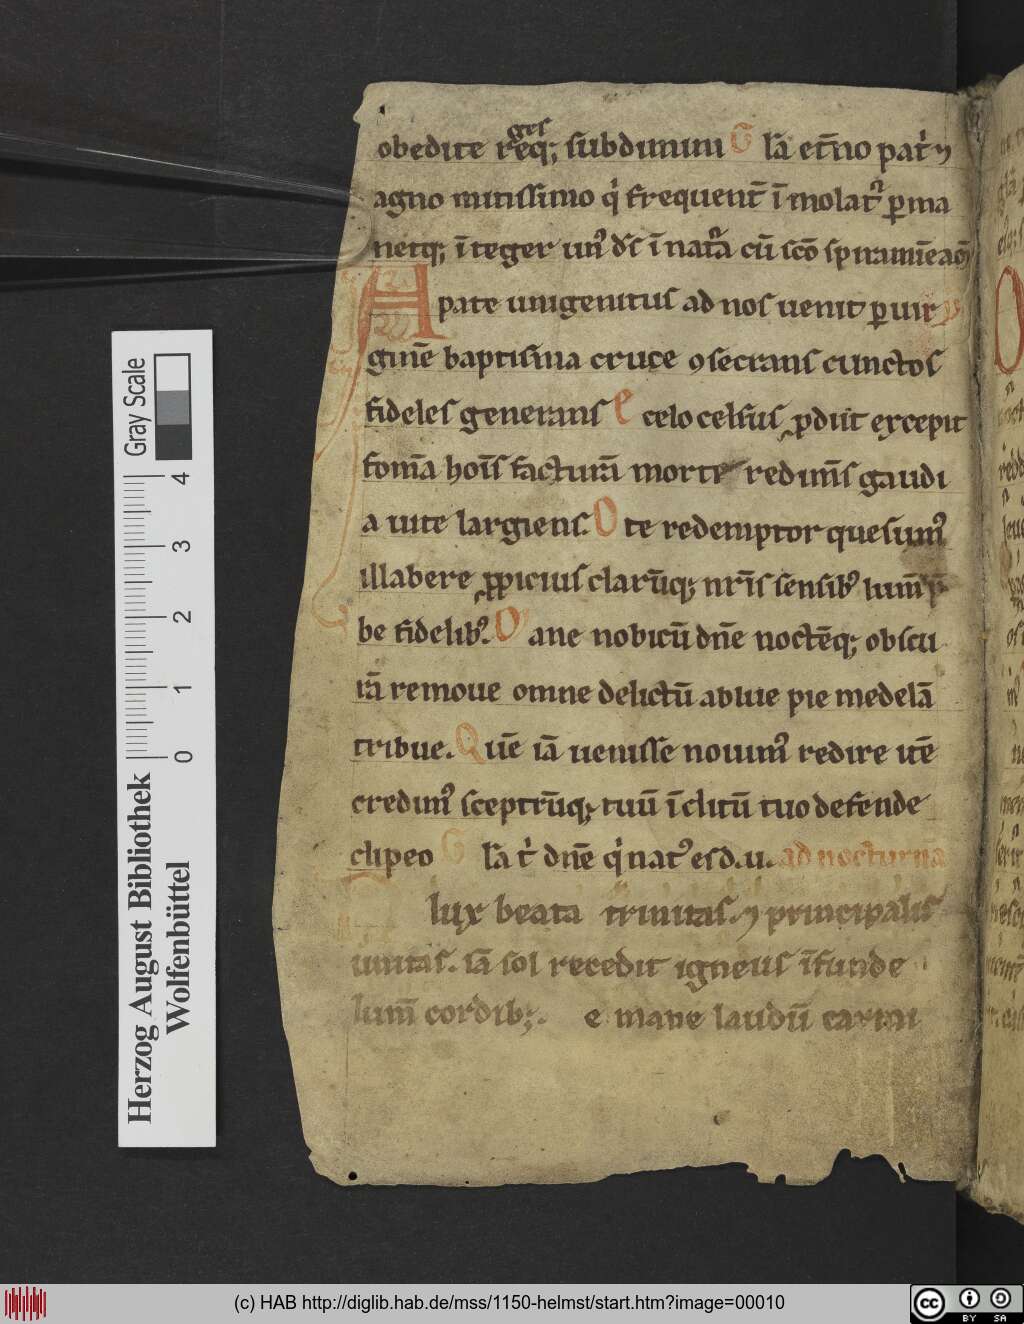 obedite reqꝫ subdimini G lā et̄no pat'⁊
ges
agno mitissimo q' frequent̄ īmolat᷒ ꝑma
netqꝫ īteger un᷒ ds īnat᷒a cū scō spiramīe
A pate unigenitus ad nos uenit ꝑ uir
ginē baptisma cruce ꝯsecrans cunctos
fideles generans E celo celsus ꝓdiit excepit
formā hois facturā morte redimēs gaudi
a uite largiens. O te redemptor quesum᷒
illabere ꝓpicius clarūqꝫ nr̄is sensib᷒ lum̄
be fidelib᷒. O ane nobicū dn̄e noctēqꝫ obscu
rā remoue omne delictū ablue pie medelā
tribue. Q uē iā uenisse nouim᷒ redire itē
credim᷒ sceptrūqꝫ tuū īclitū tuo defende
clipeo G lā t' dn̄e q' nat᷒ es d. u. ad nocturna
lux beata trinitas. ⁊ principalis
unitas. iā sol recedit igneus īfunde
lum̄ cordibꝫ. e mane laudū carmi
Gray Scale
0 1 2 3 4
Herzog August Bibliothek
Wolfenbüttel
(c) HAB http://diglib.hab.de/mss/1150-helmst/start.htm?image=00010
cc BY SA